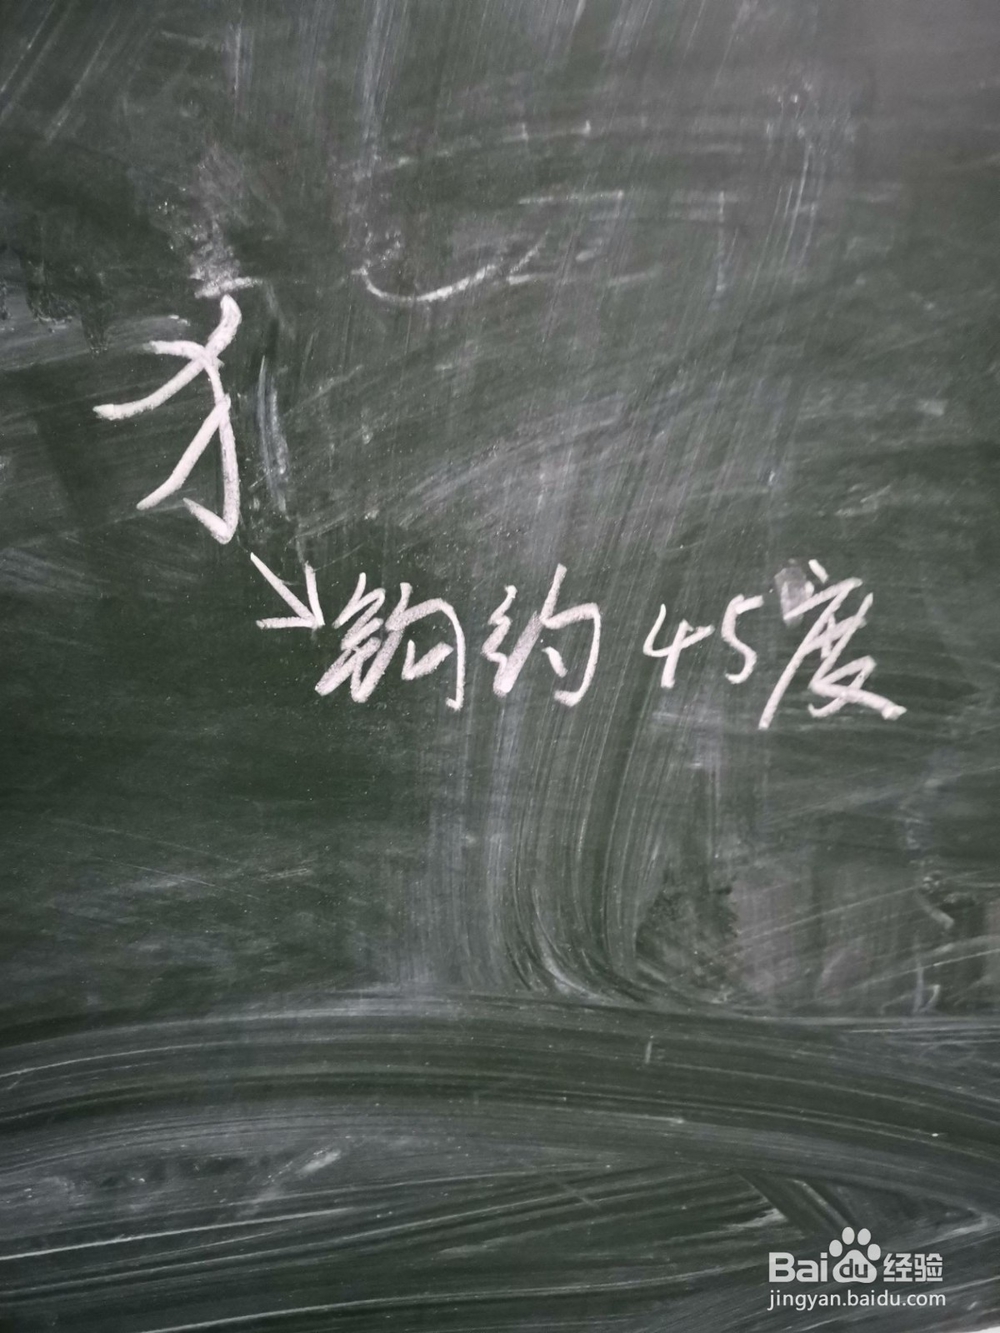 犭
钩约45度
Baidu经验
jingyan.baidu.com